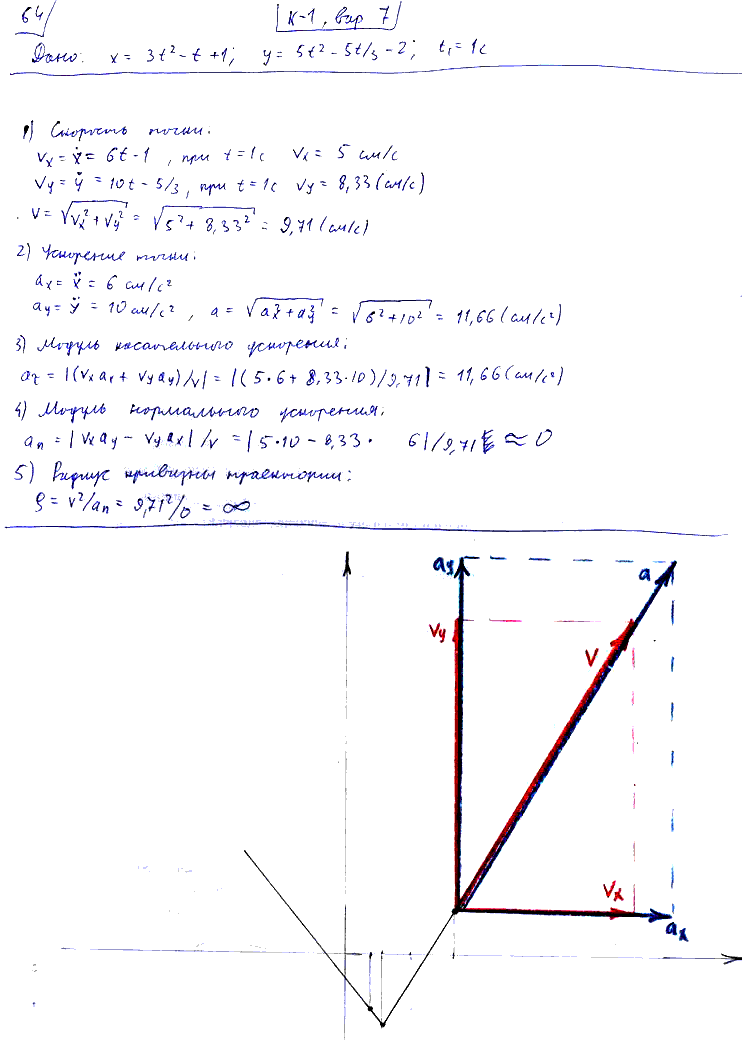 64
К-1, вар 7
Дано: x = 3t² - t + 1; y = 5t² - 5t/3 - 2; t₁ = 1c
1) Скорость точки.
Vx = ẋ = 6t - 1, при t = 1c Vx = 5 см/с
Vy = ẏ = 10t - 5/3, при t = 1c Vy = 8,33 (см/с)
V = √(Vx² + Vy²) = √(5² + 8,33²) = 9,71 (см/с)
2) Ускорение точки.
ax = ẍ = 6 см/с²
ay = ÿ = 10 см/с², a = √(ax² + ay²) = √(6² + 10²) = 11,66 (см/с²)
3) Модуль касательного ускорения:
aτ = |(Vx ax + Vy ay)/V| = |(5·6 + 8,33·10)/9,71| = 11,66 (см/с²)
4) Модуль нормального ускорения:
an = |Vx ay - Vy ax|/V = |5·10 - 8,33· 6|/9,71 ≈ 0
5) Радиус кривизны траектории:
ρ = V²/an = 9,71²/0 = ∞
ay
a
Vy
V
Vx
ax